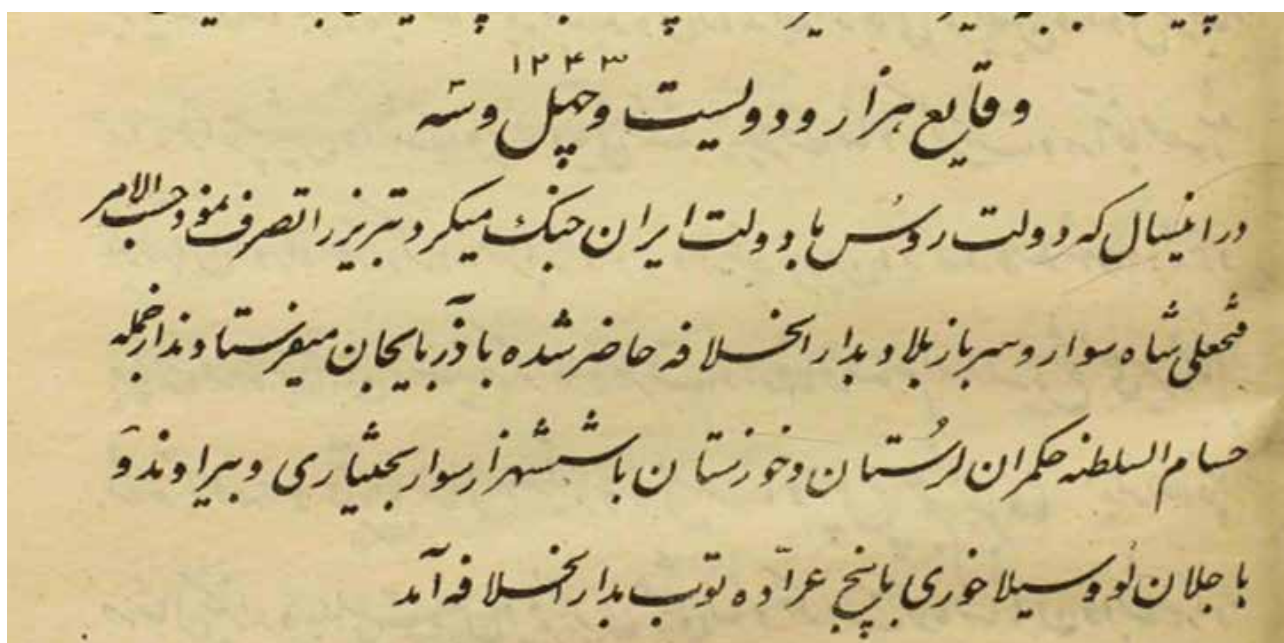 ۱۲۴۳
وقایع هزار و دولیست و چهل و سه
در اینسال که دولت روس با دولت ایران جنک میکرد و تبریز را تصرف نمود حسب الامر
فتحعلی شاه سوار و سرباز بلاد بدار الخلافه حاضر شده باذربایجان میفرستادند ازجمله
حسام السلطنه حکمران لرستان و خوزستان با ششهزار سوار بختیاری و بیراوند و
باجلان لو و سیلاخوری با پنج عراده توپ بدار الخلافه آمد